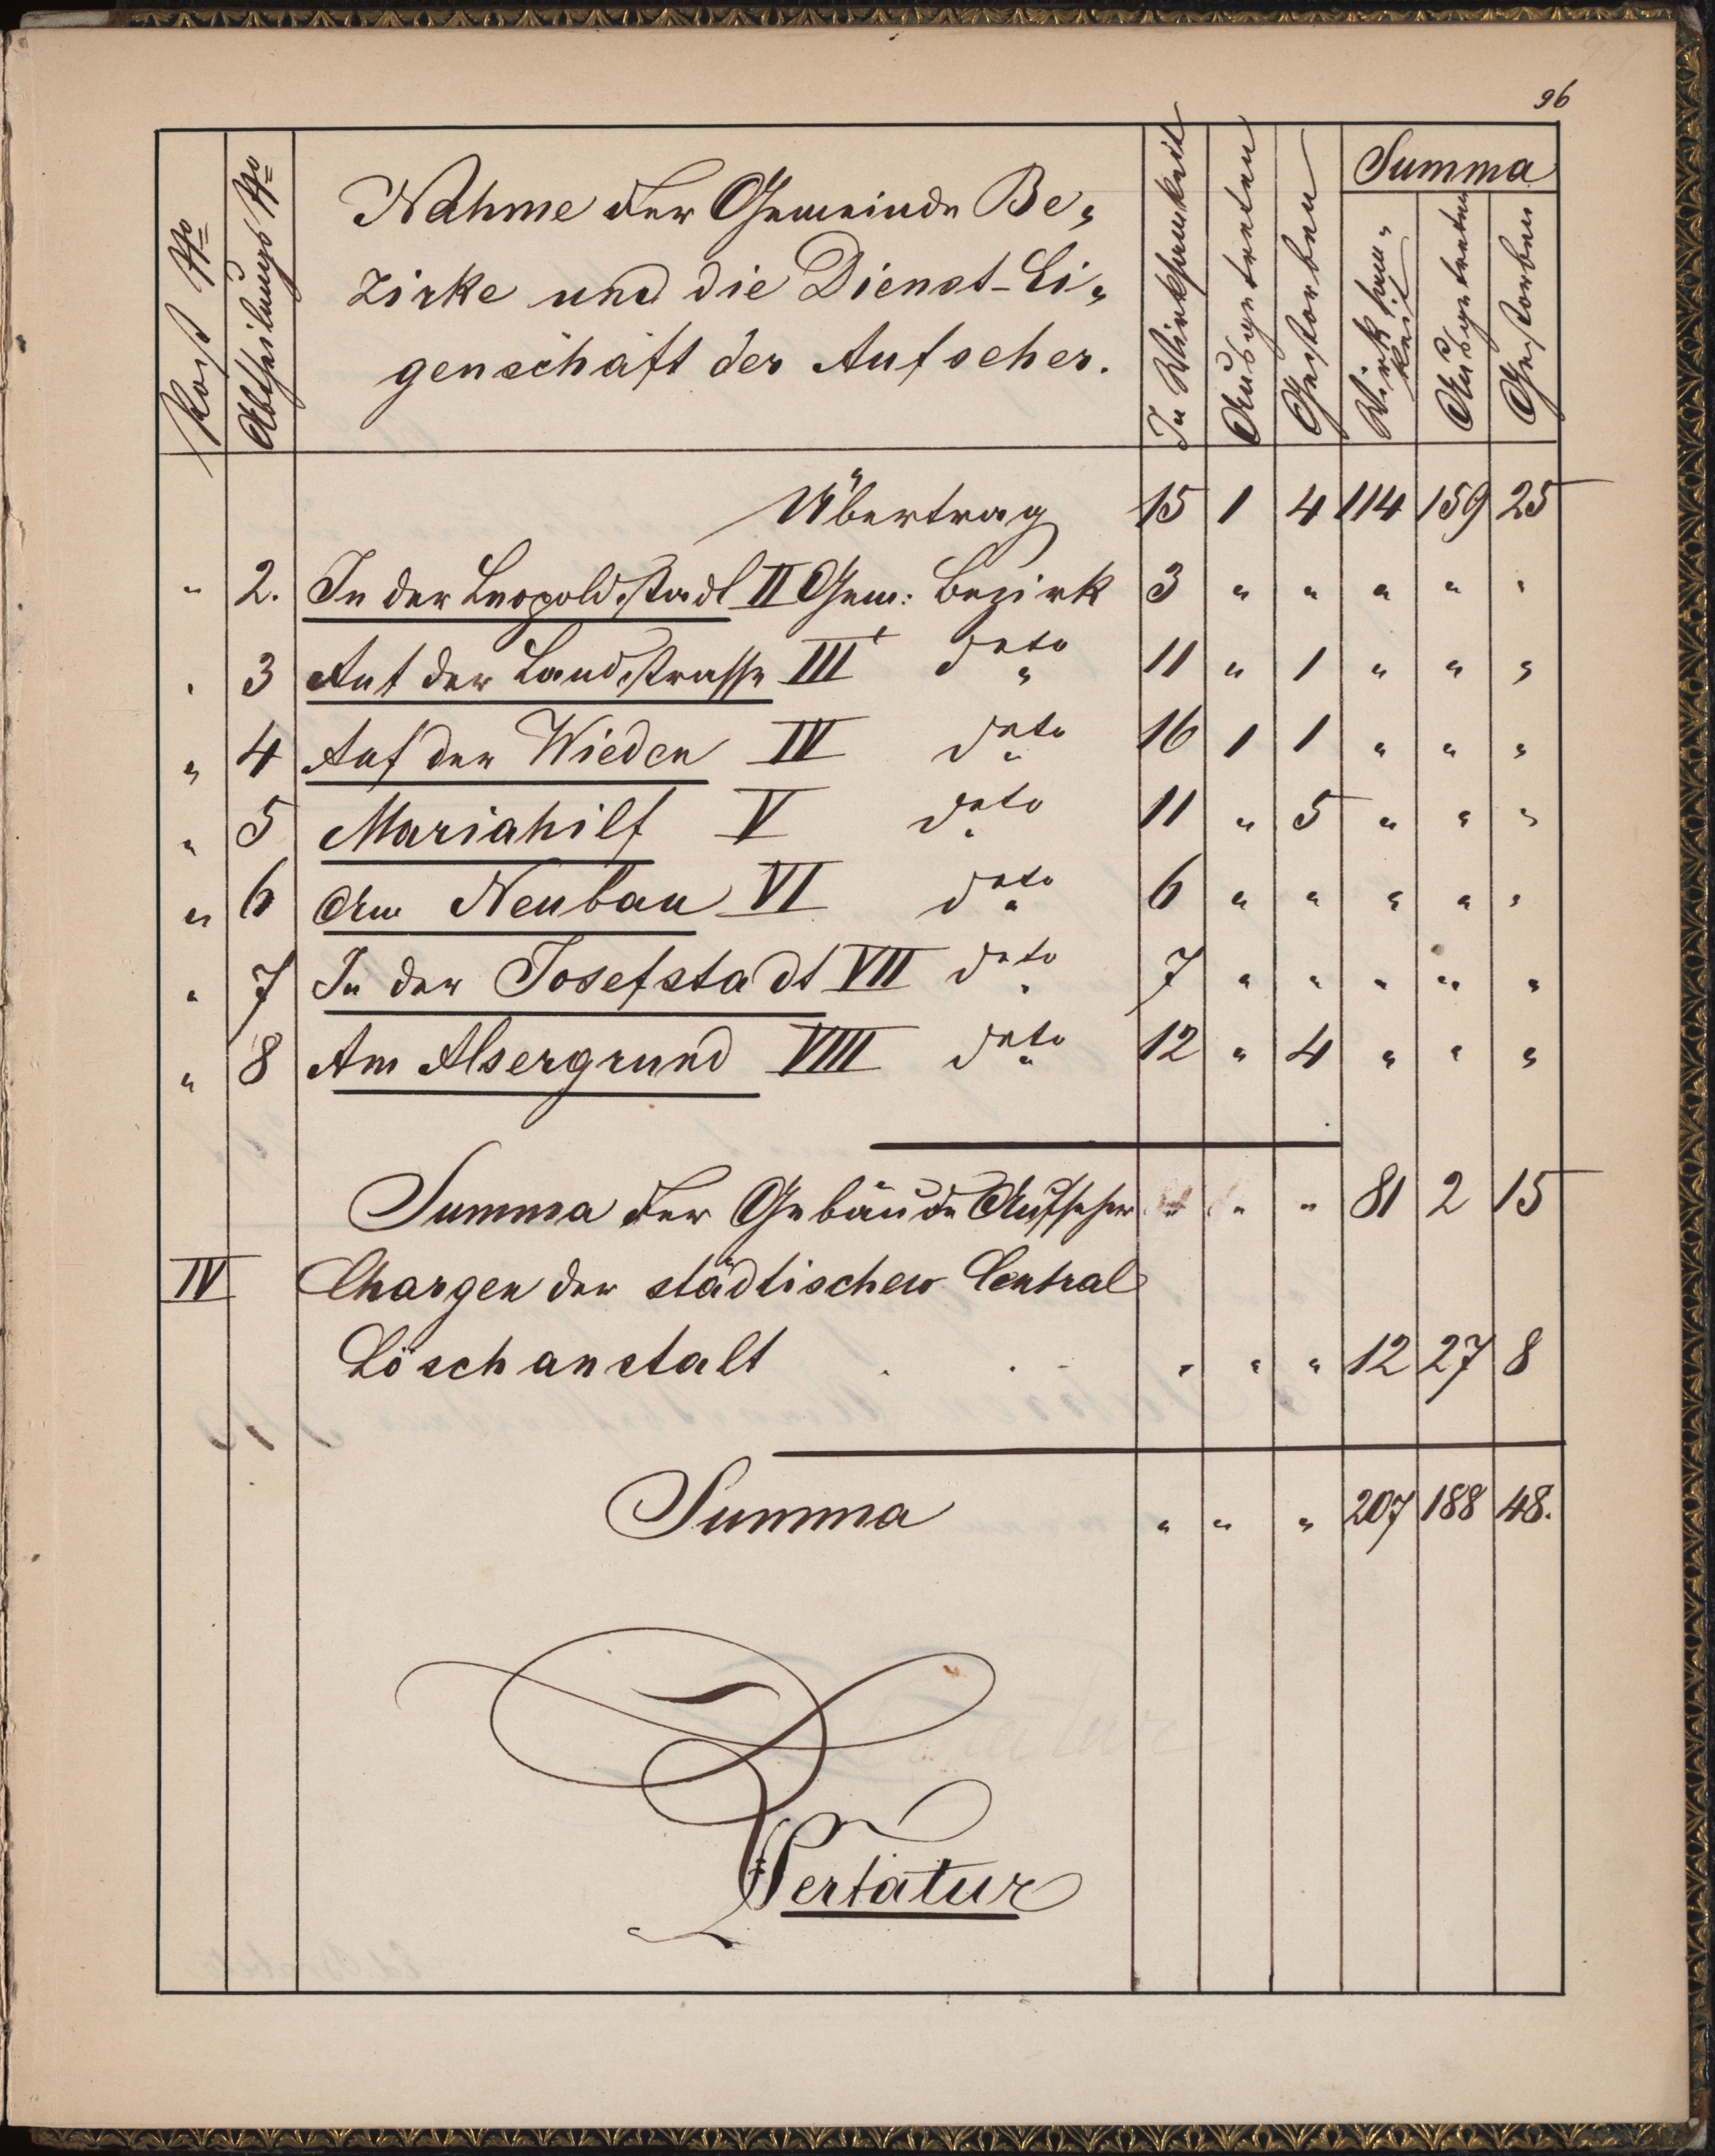 96
Post No
Abtheilungs No
Nahme der Gemeinde Be„
zirke und die Dienst-Ei„
genschaft der Aufseher.
In Wirksamkeit
Ausgetreten
Gestorben
Summa
Wirksam„
keit
Ausgetreten
Gestorben
Übertrag 15 1 4 114 159 25
" 2. In der Leopoldstadt II Gem: Bezirk 3 " " " " "
" 3 Auf der Landstrasse III dto 11 " 1 " " "
" 4 Auf der Wieden IV dto 16 1 1 " " "
" 5 Mariahilf V dto 11 " 5 " " "
" 6 Am Neubau VI dto 6 " " " " "
" 7 In der Josefstadt VII dto 7 " " " " "
" 8 Am Alsergrund VIII dto 12 " 4 " " "
Summa der Gebäude Aufseher " " " 81 2 15
IV Chargen der städtischen Central
Löschanstalt . . " " " 12 27 8
Summa " " " 207 188 48.
Vertatur